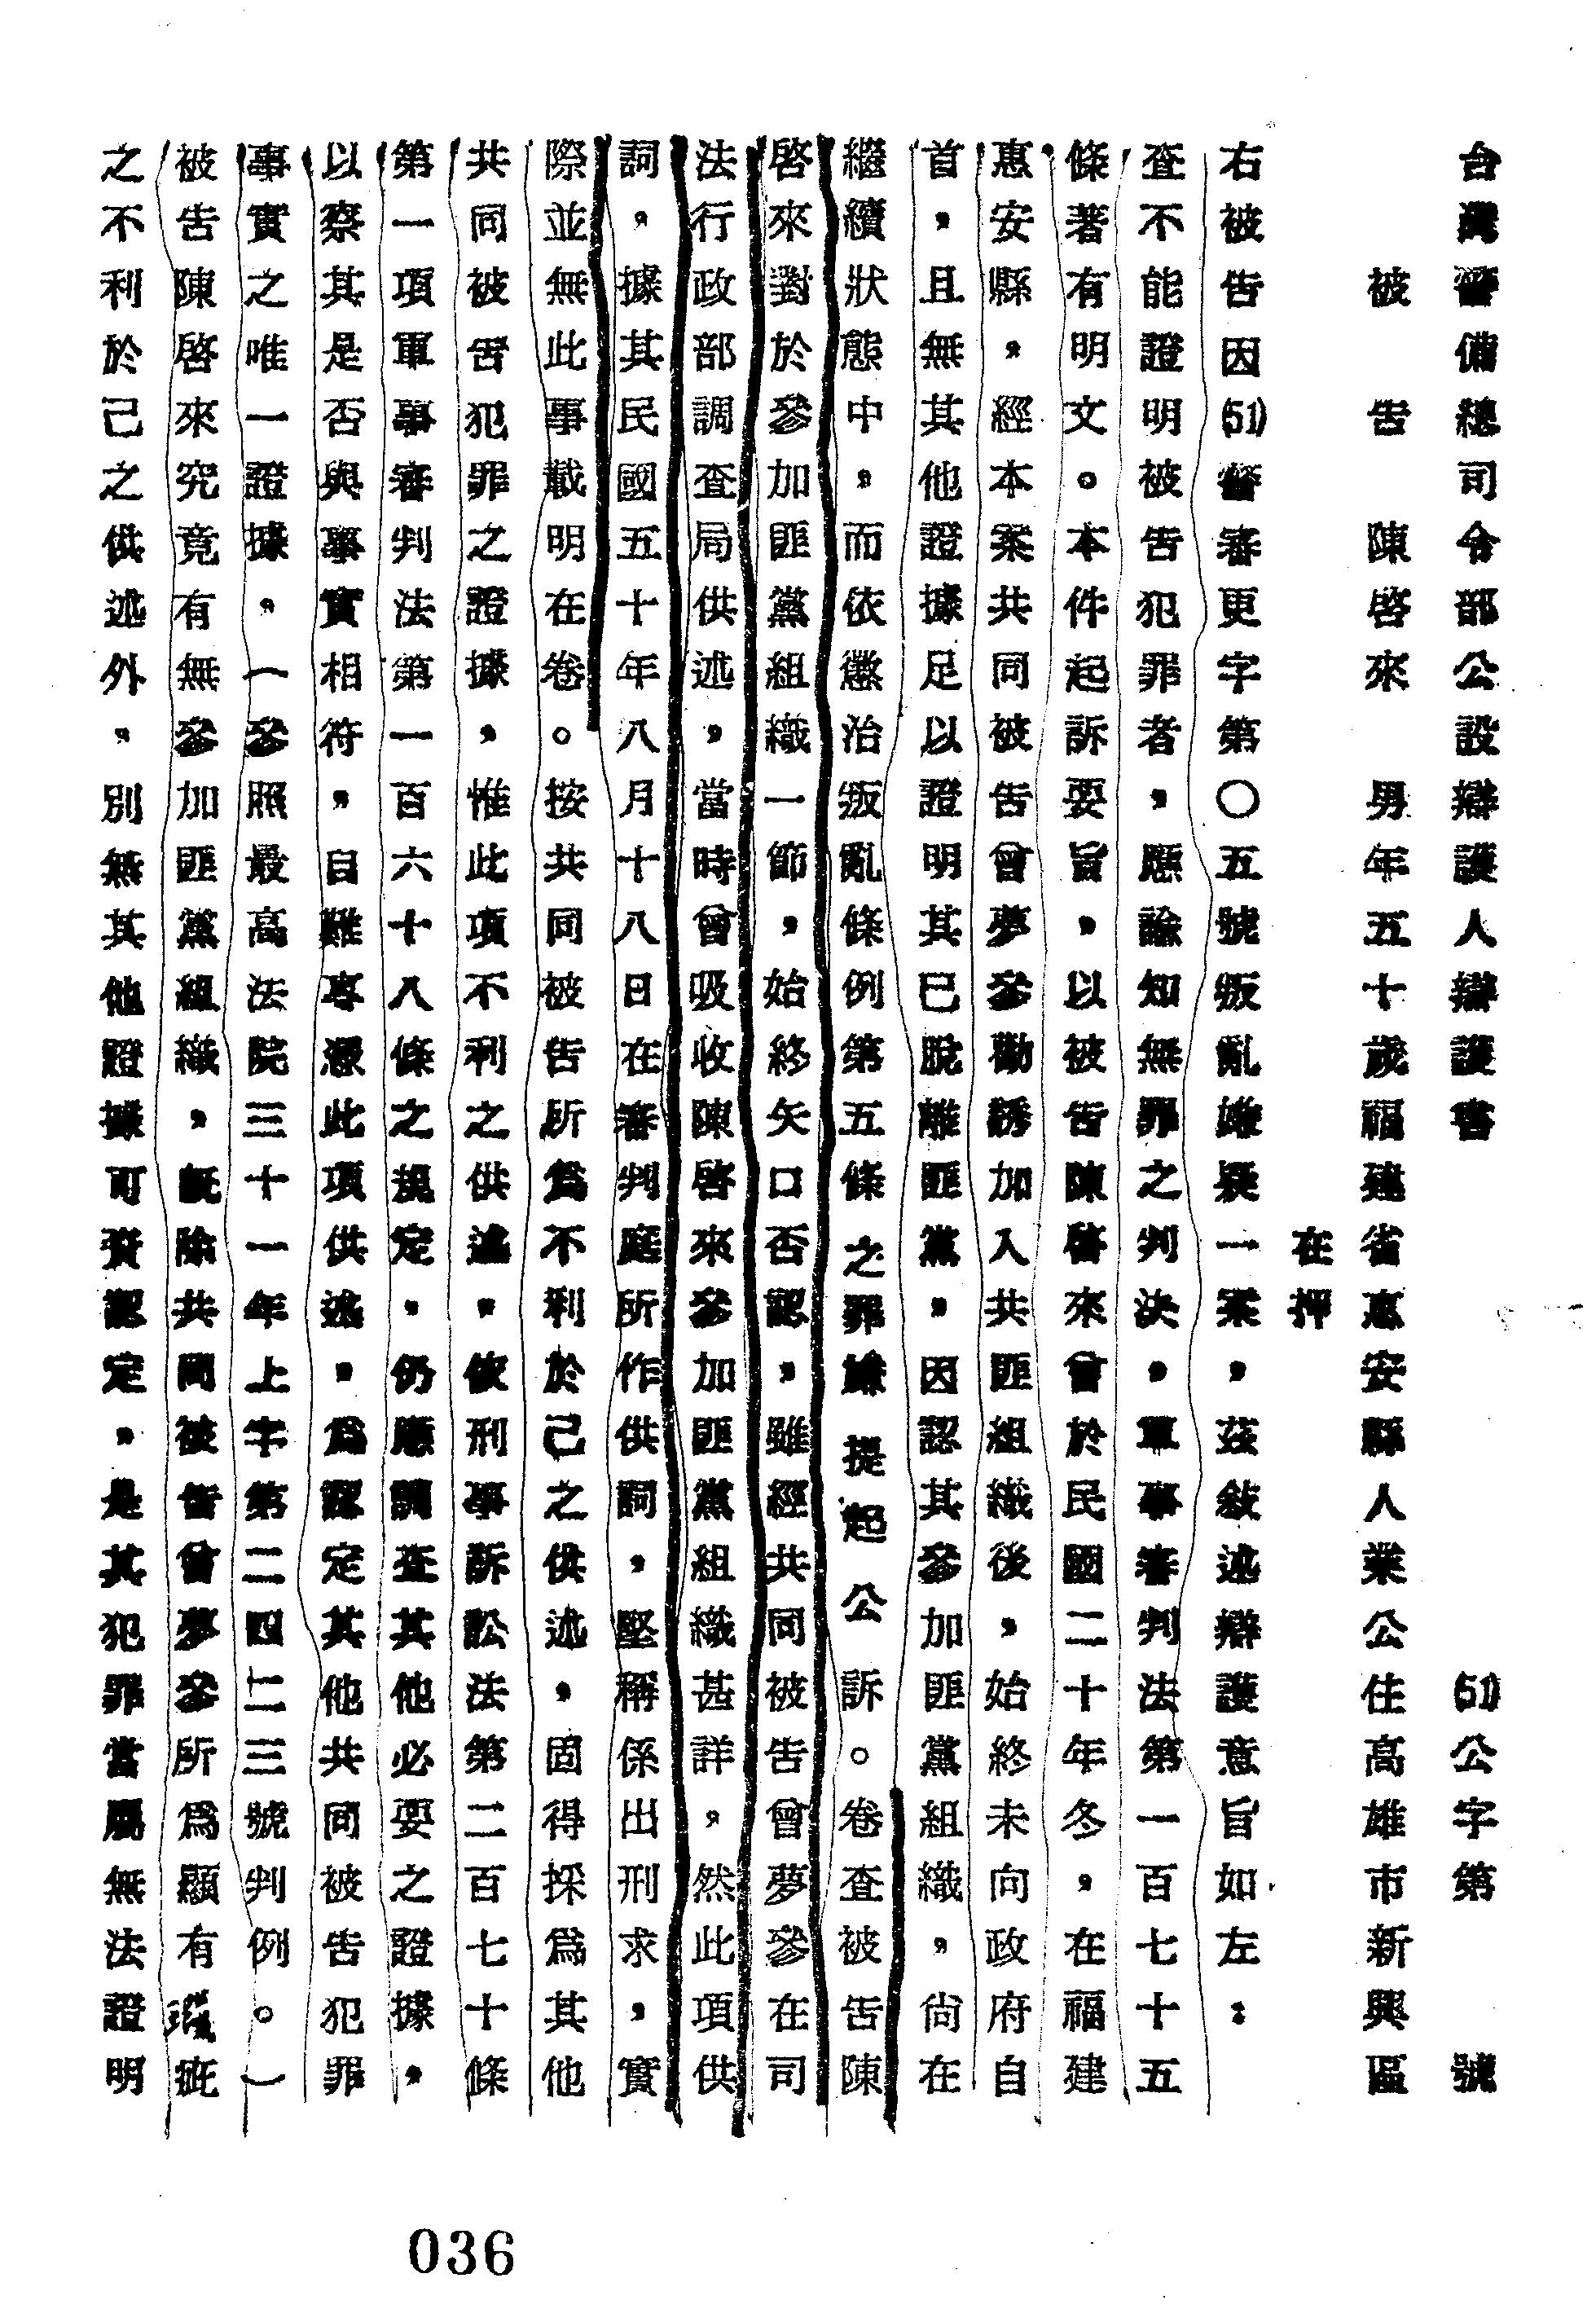 台灣警備總司令部公設辯護人辯護書 (51)公字第　　號
被告 陳啓來 男年五十歲福建省惠安縣人業公住高雄市新興區
在押
右被告因(51)警審更字第〇五號叛亂嫌疑一案，茲敍述辯護意旨如左：
查不能證明被告犯罪者，應諭知無罪之判決，軍事審判法第一百七十五
條著有明文。本件起訴要旨，以被告陳啓來曾於民國二十年冬，在福建
惠安縣，經本案共同被告曾夢參勸誘加入共匪組織後，始終未向政府自
首，且無其他證據足以證明其已脫離匪黨，因認其參加匪黨組織，尚在
繼續狀態中，而依懲治叛亂條例第五條之罪嫌提起公訴。卷查被告陳
啓來對於參加匪黨組織一節，始終矢口否認，雖經共同被告曾夢參在司
法行政部調查局供述，當時曾吸收陳啓來參加匪黨組織甚詳，然此項供
詞，據其民國五十年八月十八日在審判庭所作供詞，堅稱係出刑求，實
際並無此事載明在卷。按共同被告所爲不利於己之供述，固得採爲其他
共同被告犯罪之證據，惟此項不利之供述，依刑事訴訟法第二百七十條
第一項軍事審判法第一百六十八條之規定，仍應調查其他必要之證據，
以察其是否與事實相符，自難專憑此項供述，爲認定其他共同被告犯罪
事實之唯一證據。（參照最高法院三十一年上字第二四二三號判例。）
被告陳啓來究竟有無參加匪黨組織，旣除共同被告曾夢參所爲顯有瑕疵
之不利於己之供述外，別無其他證據可資認定，是其犯罪當屬無法證明
036